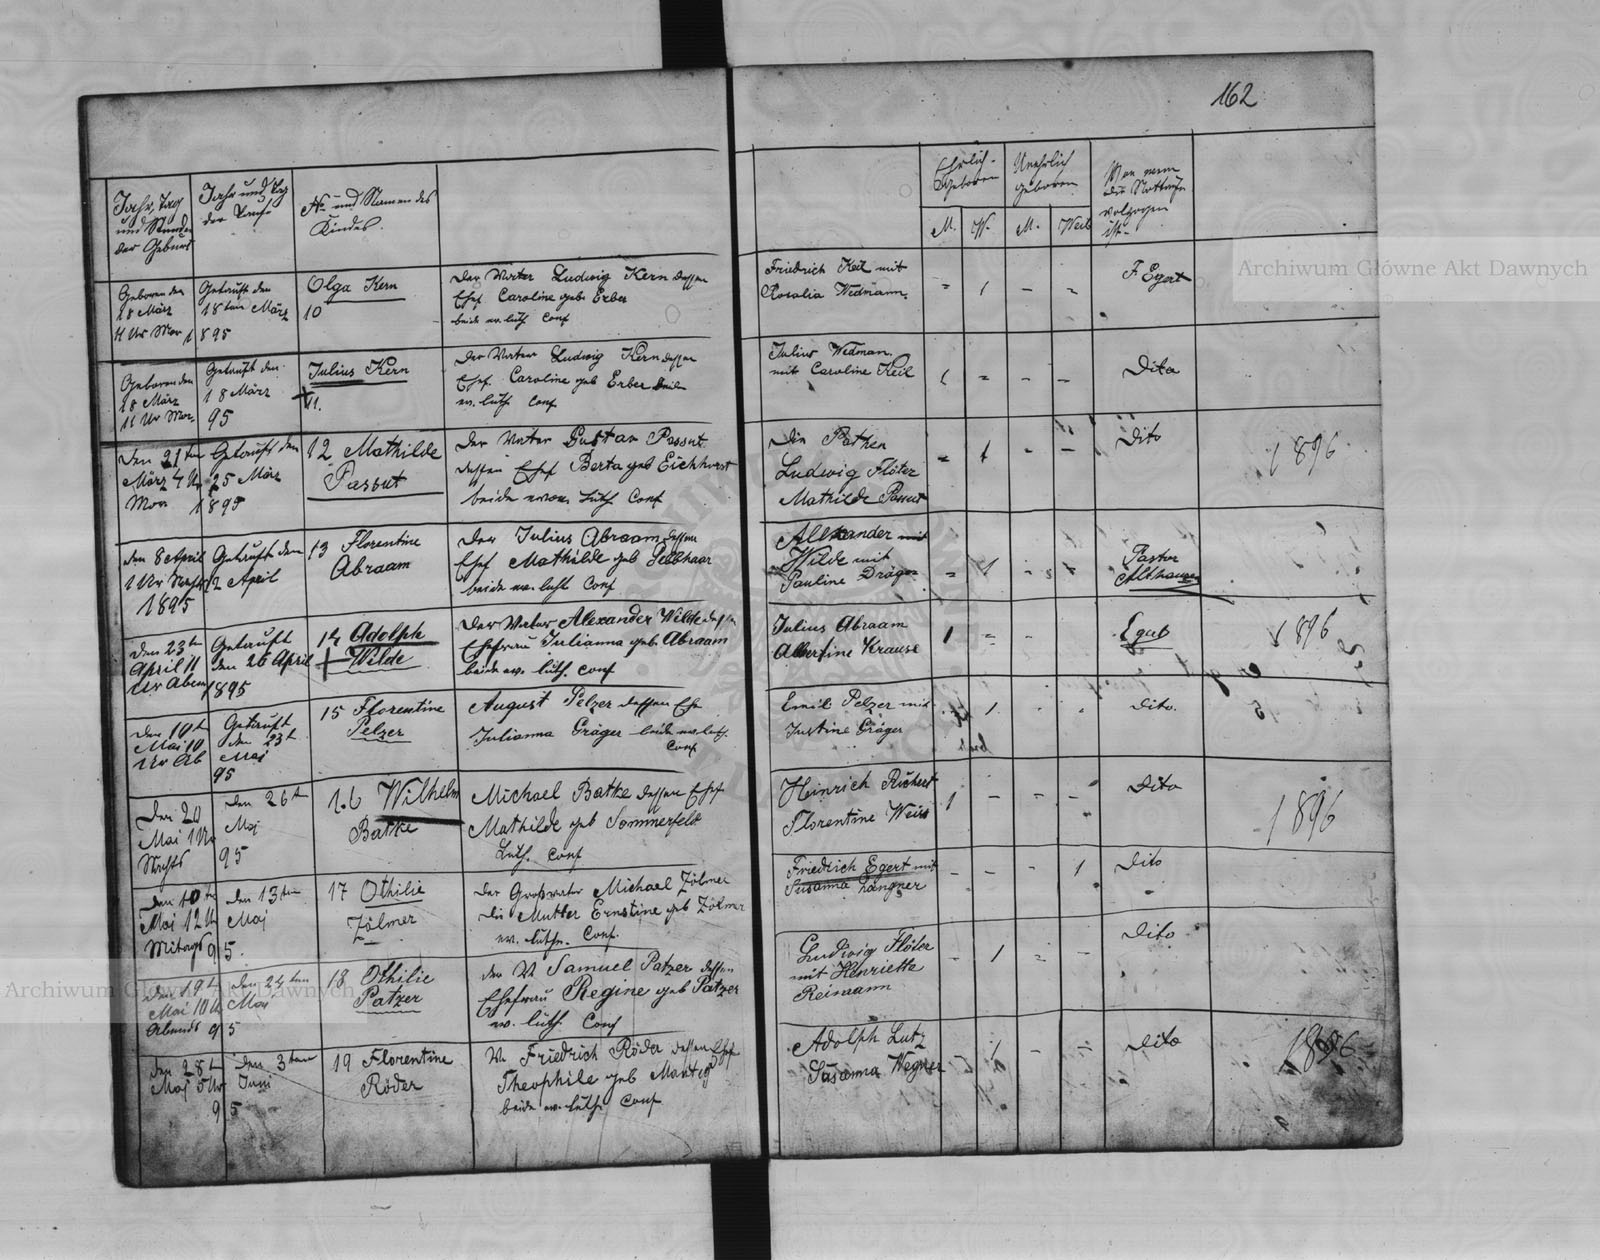 162
Jahr, Tag
und Stunde
der Geburt
Jahr und Tag
der Taufe
No und Namen des
Kindes.
Ehrlich
geboren
Unehrlich
geboren
Von wem
die Nottaufe
vollzogen
ist.
M.
W.
M.
Weib
Geboren den
18 März
11 Uhr Mor
Getauft den
18ten März
1895
Olga Kern
10
Der Vater Ludwig Kern dessen
Ehef Caroline geb Erber
beide ev. luth Conf
Friedrich Keil mit
Rosalia Wedmann.
" 1 - -
F Egert
Geboren den
18 März
11 Uhr Mor.
Getauft den
18 März
95
Julius Kern
+ 11.
Der Vater Ludwig Kern dessen
Ehef Caroline geb Erber beide
ev. luth Conf
Julius Wedman.
mit Caroline Keil
1 - - -
Dito
Den 21ten
März 4 Uhr
Mor
Getauft den
25 März
1895
12 Mathilde
Passut
Der Vater Gustav Passut
dessen Ehef Berta geb Eichhorst
beide evan. Luth Conf
Die Pathen
Ludwig Flöter
Mathilde Passut
- 1 - -
Dito
1896
den 8 April
1 Uhr Nachts
1895
Getauft den
12 April
13 Florentine
Abraam
Der Julius Abraam dessen
Ehef Mathilde geb Gelbhaar
beide ev. luth Conf
Alexander mit
Wilde mit
Pauline Dräger
- 1 -
Pastor
Althausen
Den 23tn
April 11
Uhr Abend
Getauft
den 26 April
1895
14 Adolph
+ Wilde
Der Vater Alexander Wilde dessen
Ehefrau Julianna geb. Abraam
beide ev. luth. Conf
Julius Abraam
Albertine Krause
1 - -
Egert
1896
Den 10tn
Mai 10
Uhr Ab
Getauft
den 23t
Mai
95
15 Florentine
Pelzer
August Pelzer dessen Ehe
Julianna Gräger beide ev. luth.
Conf
Emil Pelzer mit
Justine Gräger
1 - -
Dito.
Den 20
Mai 1 Uhr
Nachts
Den 26tn
Maj
95
16 Wilhelm
Batke
Michael Batke dessen Ehef
Mathilde geb Sommerfeld
Luth. Conf
Heinrich Richert
Florentine Weiss
1 - - -
Dito
1896
Den 10tn
Maj 12 Uhr
Mitags
Den 13ten
Maj
95.
17 Othilie
Zölmer
der Großvater Michael Zölmer
die Mutter Ernstine geb Zölmer
ev. luth. Conf.
Friedrich Egert mit
Susanna Langner
- - - 1
Dito
Den 19t
Mai 10 Uhr
Abends
den 24ten
Mai
95
18 Othilie
Patzer
der V. Samuel Patzer dessen
Ehefrau Regine geb Patzer
ev. luth. Conf
Ludwig Flöter
mit Henriette
Reimann
- 1 - -
Dito
Den 28t
Maj 5 Uhr
den 3ten
Juni
95
19 Florentine
Röder
V. Friedrich Röder dessen Ehef
Theophile geb
beide ev. luth. Conf
Adolph Lutz
Susanna Wegner
1 -
Dito
1896
Archiwum Główne Akt Dawnych
Archiwum Główne Akt Dawnych